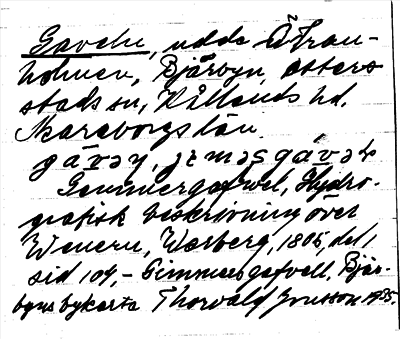 Gaveln, udde Åfran-
holmen, Bjärbyn, Otters
stads sn, Kållands hd,
Skaraborgs län.
gávəɳ, jɛməʂgávəɫ
Gemmergafwel, Hydro-
grafisk beskrivning över
Wenern, Warberg, 1805, del 1
sid 104, - Gimmersgafvell, Bjär-
byns bykarta Thorvald Jonsson 1935.